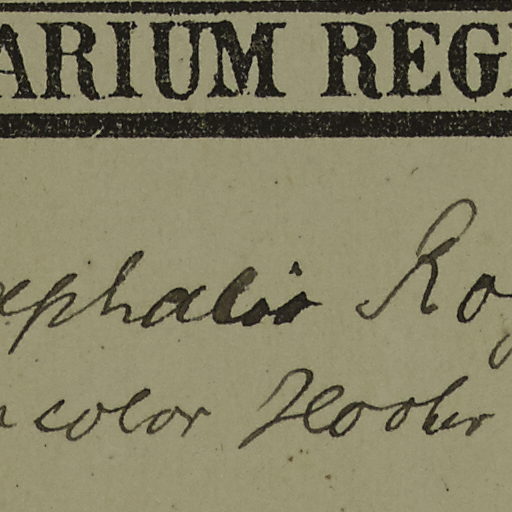 ARIUM REG
ephalis Ro
color Hooker